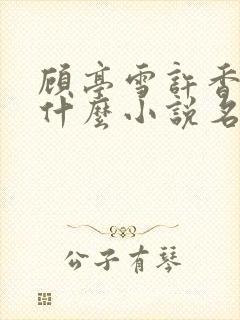 顾亭雪許香
什麼小說名
公子有琴